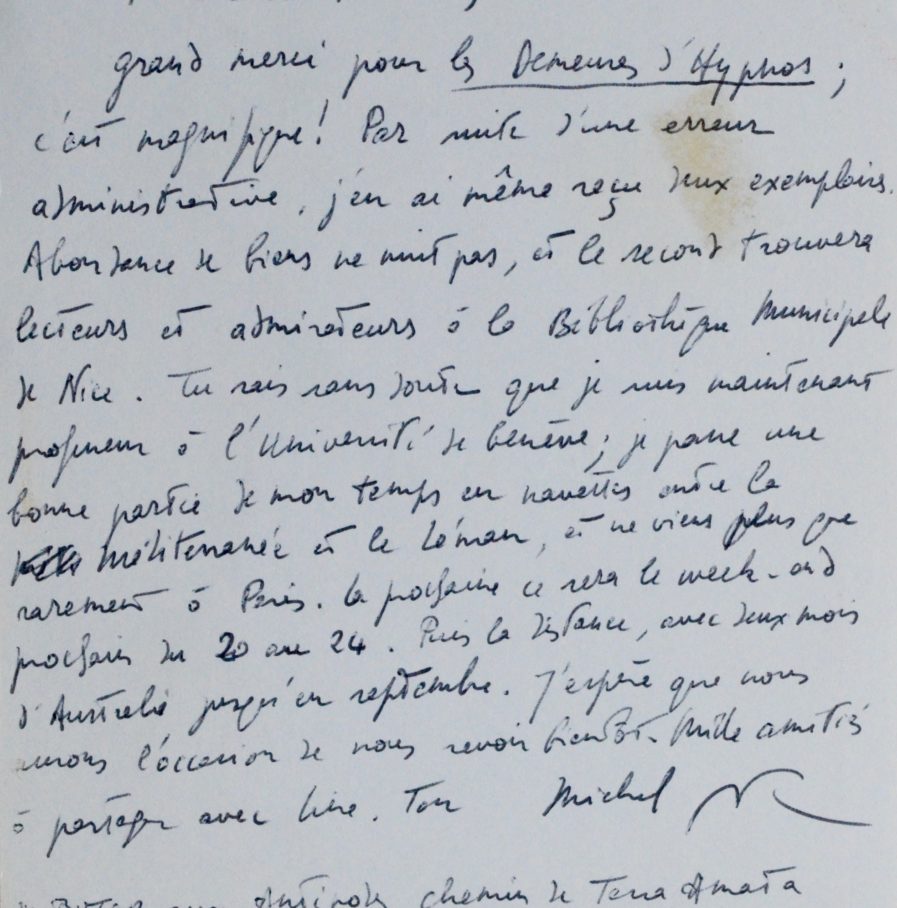 grand merci pour les Demeures d'Hypnos ;
c'est magnifique ! Par suite d'une erreur
administrative, j'en ai même reçu deux exemplaires.
Abondance de biens ne nuit pas, et le second trouvera
lecteurs et admirateurs à la Bibliothèque Municipale
de Nice. Tu sais sans doute que je suis maintenant
professeur à l'Université de Genève ; je passe une
bonne partie de mon temps en navettes entre la
Méditerranée et le Léman, et ne viens plus que
rarement à Paris. La prochaine ce sera le week-end
prochain du 20 au 24. Puis la distance, avec deux mois
d'Australie jusqu'en septembre. J'espère que nous
aurons l'occasion de nous revoir bientôt. Mille amitiés
à partager avec Ton Michel
aux Antipodes chemin de Terra Amata